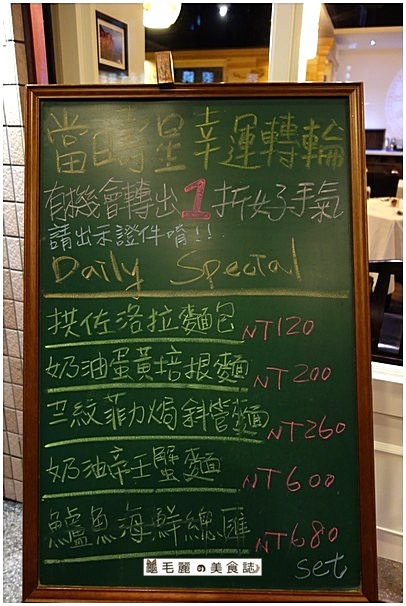 當時星幸運轉輪
有機會轉出1折好手氣
請出示證件唷!!
Daily Special
拱佐洛拉麵包 NT120
奶油蛋黃培根麵 NT200
三紋菲力焗斜管麵 NT260
奶油帝王蟹麵 NT600
鱸魚海鮮總匯 NT680
set
毛麗の美食誌